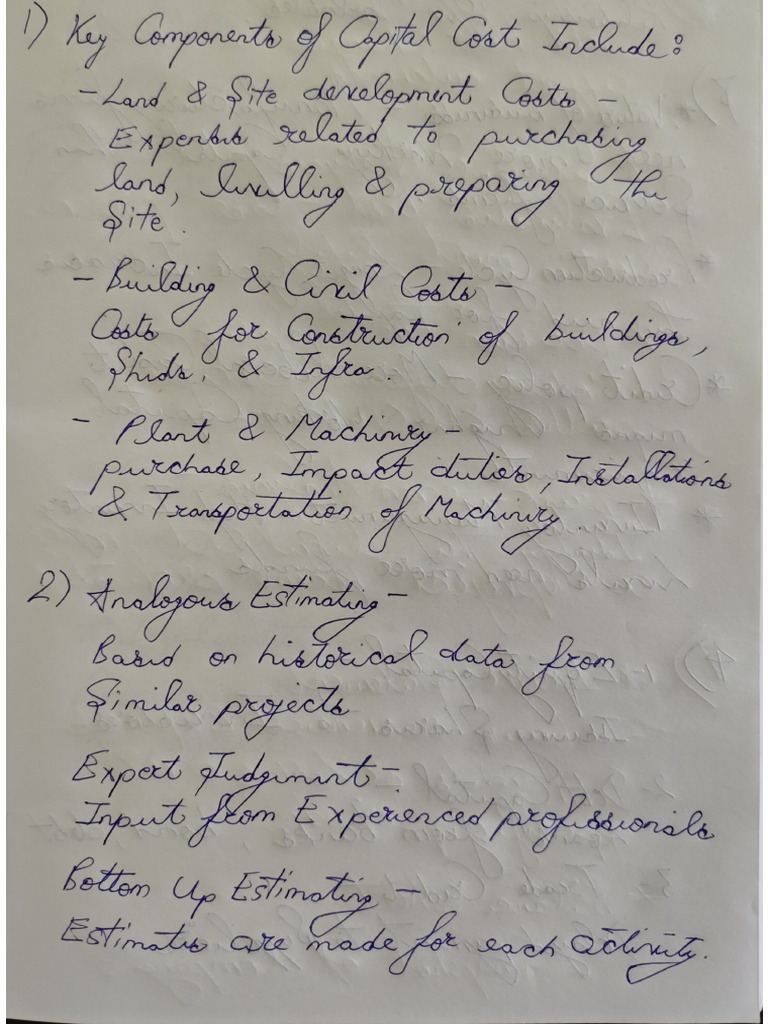 1) Key Components of Capital Cost Include:
- Land & Site development Costs -
Expenses related to purchasing
land, levelling & preparing the
Site.
- Building & Civil Costs -
Costs for Construction of buildings,
Sheds, & Infra.
- Plant & Machinery -
purchase, Impact duties, Installations
& Transportation of Machinery.
2) Analogous Estimating -
Based on historical data from
Similar projects
Expert Judgement -
Input from Experienced professionals
Bottom Up Estimating -
Estimates are made for each activity.